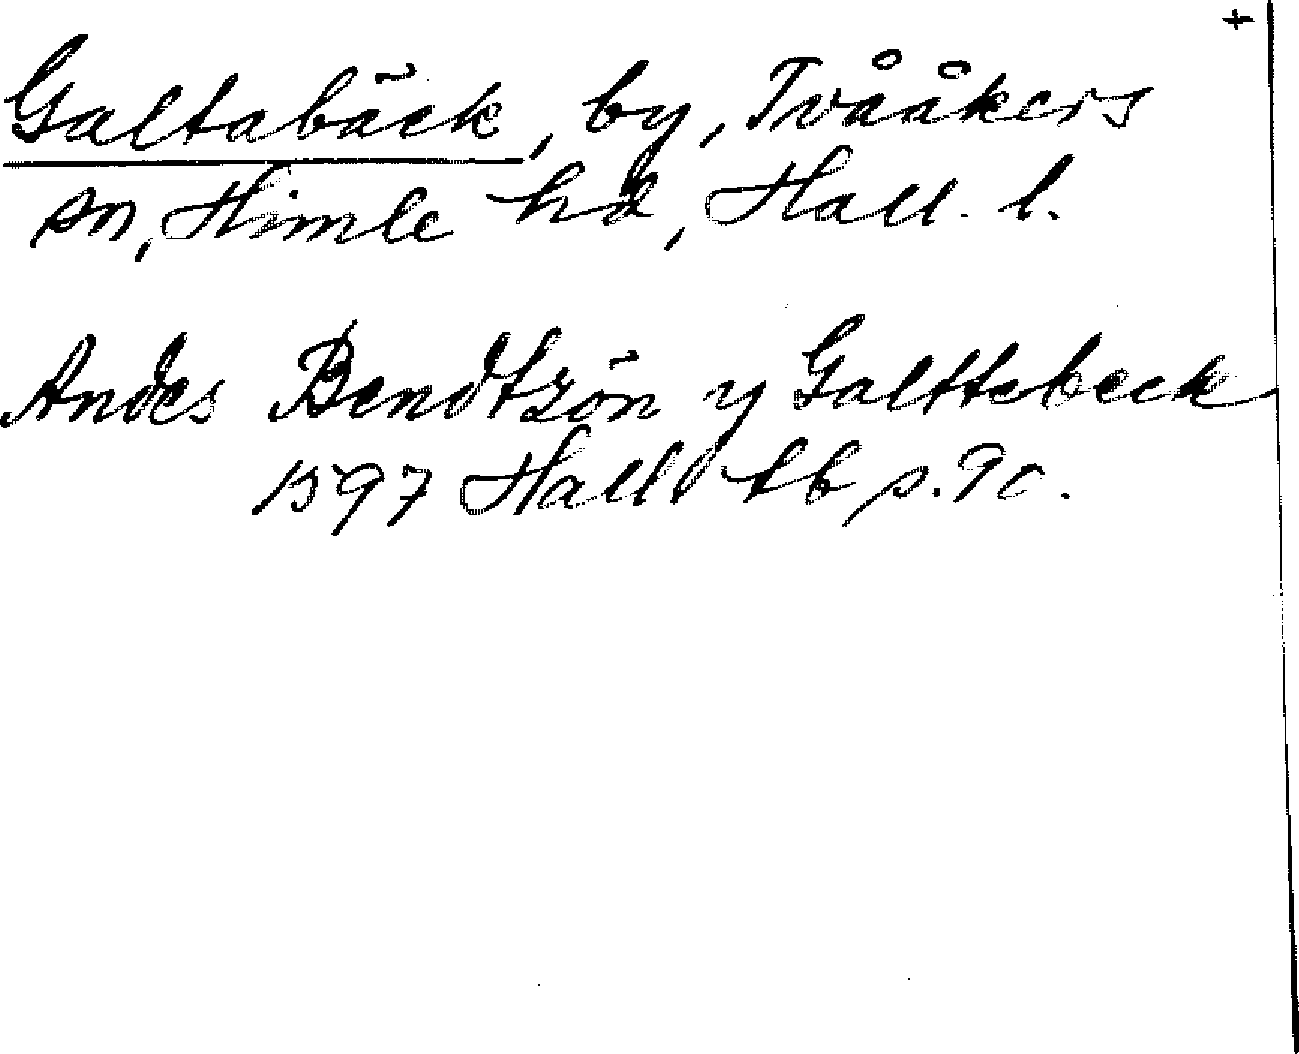 +
Galtabäck, by, Tvååkers
sn, Himle hd, Hall. l.
Andes Bendtzön y Galttebeck
1597 Hall lb s. 90.